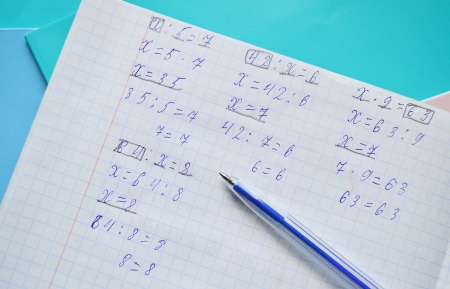 x : 5 = 7
x = 5 · 7
x = 35
35 : 5 = 7
7 = 7
42 : x = 6
x = 42 : 6
x = 7
42 : 7 = 6
6 = 6
x · 9 = 63
x = 63 : 9
x = 7
7 · 9 = 63
63 = 63
64 : x = 8
x = 64 : 8
x = 8
64 : 8 = 8
8 = 8